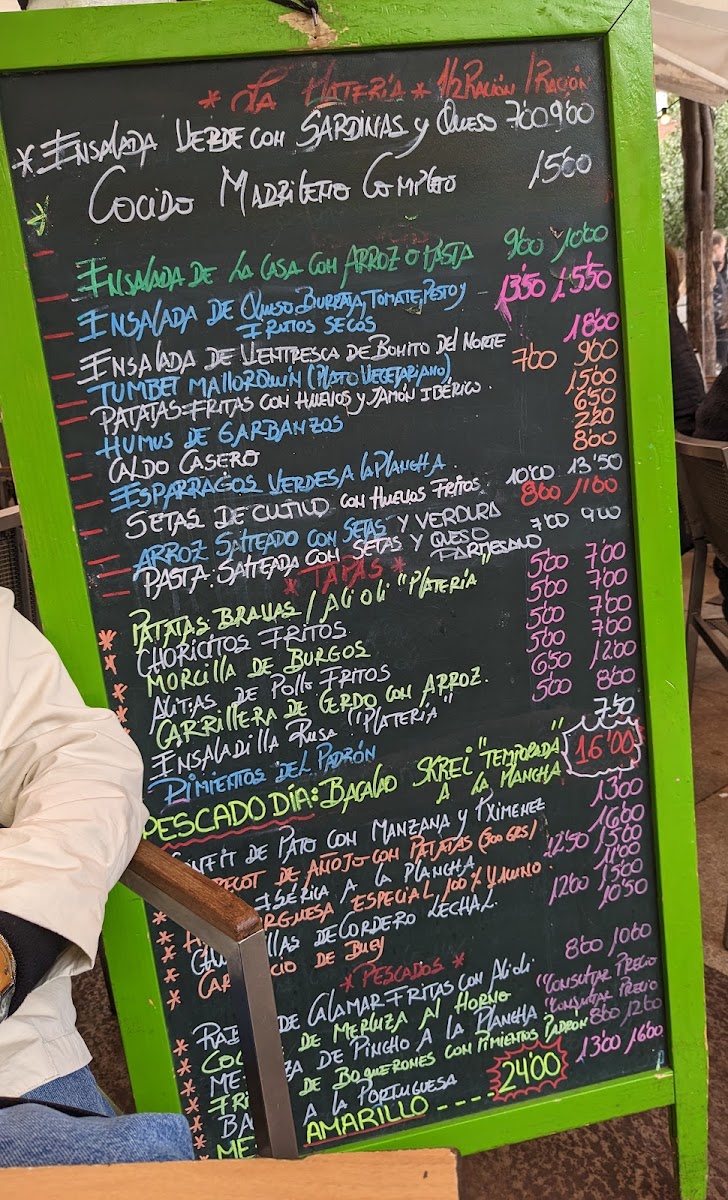 * La Platería * 1/2 Ración / Ración
* Ensalada Verde con Sardinas y Queso 7'00 9'00
Cocido Madrileño Completo 15'00
Ensalada de la Casa con Arroz o Pasta 9'00 / 10'00
Ensalada de Queso Burrata, Tomate, Pesto y 13'50 / 15'50
Frutos Secos
Ensalada de Ventresca de Bonito del Norte 18'00
Tumbet Mallorquín (Plato Vegetariano) 7'00 9'00
Patatas Fritas con Huevos y Jamón Ibérico. 15'00
Humus de Garbanzos 6'50
Caldo Casero 2'20
Esparragos Verdes a la Plancha 8'00
Setas de Cultivo con Huevos Fritos 10'00 13'50
Arroz Salteado con Setas y Verdura 8'00 / 11'00
Pasta Salteada con Setas y Queso 7'00 9'00
Parmesano
* Tapas *
* Patatas Bravas / Ali Oli "Platería" 5'00 7'00
Choricitos Fritos 5'00 7'00
Morcilla de Burgos 5'00 7'00
Alitas de Pollo Fritos 5'00 7'00
Carrillera de Cerdo con Arroz. 6'50 12'00
Ensaladilla Rusa "Platería" 5'00 8'00
Pimientos del Padrón 7'50
Pescado Día: Bacalao Skrei "Temporada" 16'00
a la Plancha
Confit de Pato con Manzana y PXimenez 13'00
de Añojo con Patatas (300 grs) 16'00
Ibérica a la Plancha 12'50 / 15'00
Especial 100% Vacuno 11'00
de Cordero Lechal 12'00 15'00
de Buey 10'50
* Pescados *
de Calamar Fritas con Alioli 8'00 10'00
de Merluza al Horno "Consultar Precio
de Pincho a la Plancha "Consultar Precio
de Boquerones con Pimientos Padrón 8'00 / 12'00
a la Portuguesa 13'00 / 16'00
Amarillo ---- 24'00